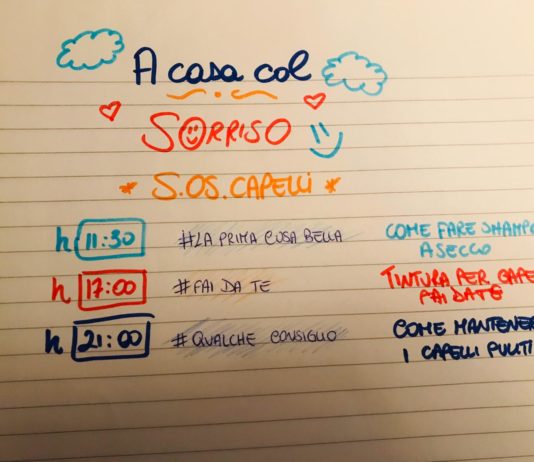 A casa col
SORRISO
* S.O.S. CAPELLI *
h 11:30 #LA PRIMA COSA BELLA COME FARE SHAMPO
A SECCO
h 17:00 #FAI DA TE TINTURA PER CAPE
FAI DA TE
h 21:00 #QUALCHE CONSIGLIO COME MANTENER
I CAPELLI PULITI